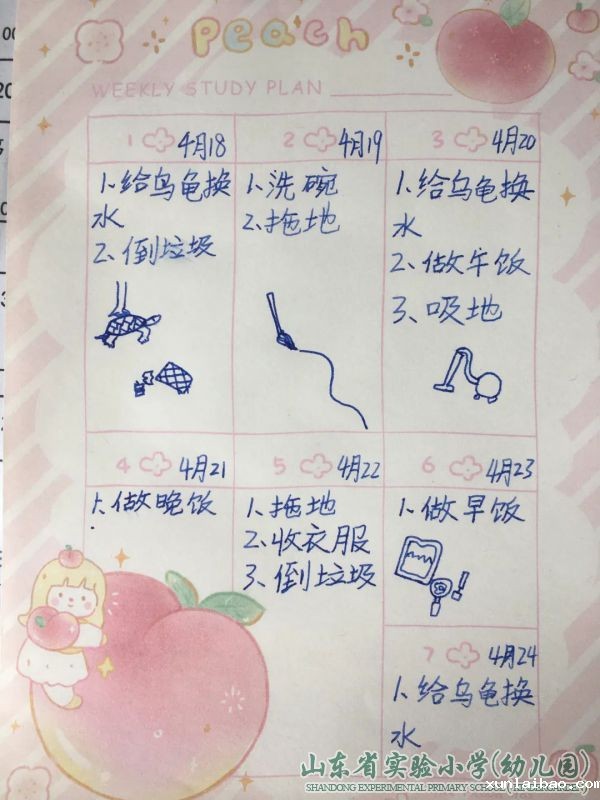 Peach
WEEKLY STUDY PLAN
1 4月18
1.给乌龟换
水
2.倒垃圾
2 4月19
1.洗碗
2.拖地
3 4月20
1.给乌龟换
水
2.做午饭
3.吸地
4 4月21
1.做晚饭
5 4月22
1.拖地
2.收衣服
3.倒垃圾
6 4月23
1.做早饭
7 4月24
1.给乌龟换
水
山东省实验小学(幼儿园)
SHANDONG EXPERIMENTAL PRIMARY SCHOOL (KINDERGARTEN)
xunlaibao.com